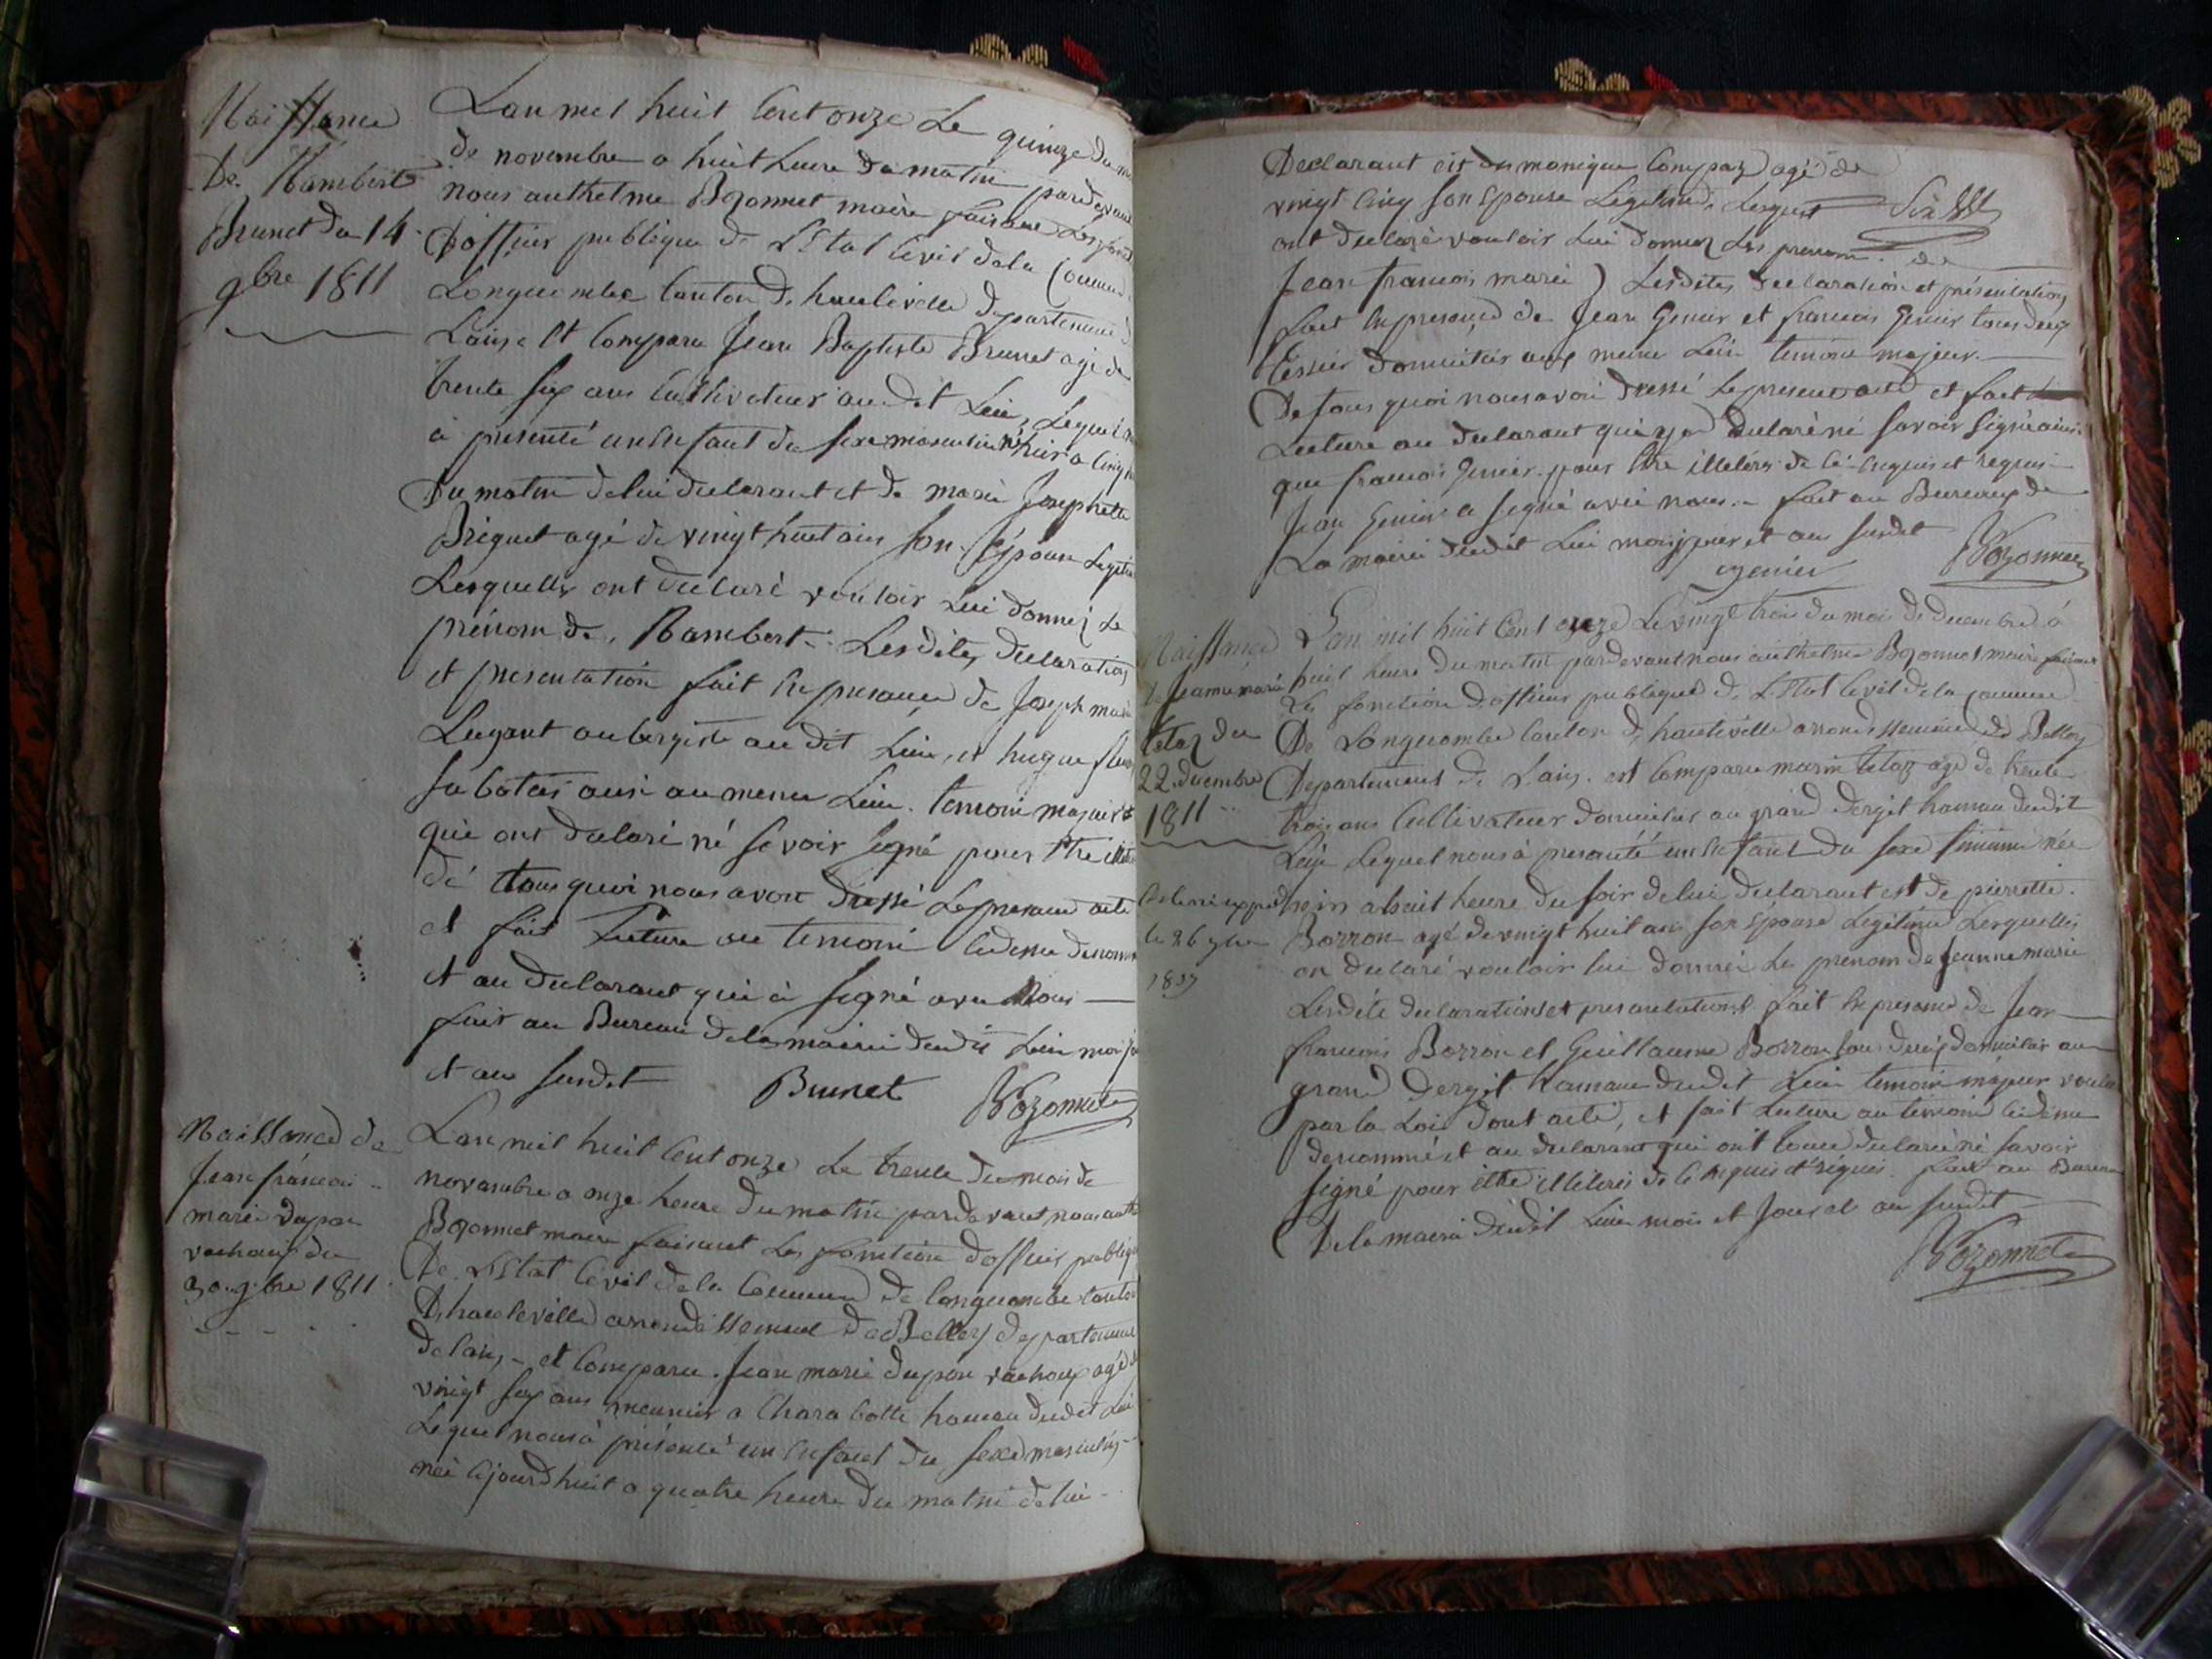 Naissance
De Rambert
Brunet du 14
9bre 1811
Lan mil huit Cent onze Le quinze du
de novembre a huit heure du matin pardevant
nous anthelme Bozonnet maire faisant Les
D'officier publique de L'Etat Civil dela Commune
Longuecombe Canton d. hauteville departement
Lain, Est Comparu Jean Baptiste Brunet agé de
trente six ans Cultivateur audit Lieu, Lequel
à presenté un Enfant du sexe masculin né hier a Cinq
Du matin delui declarant et de marie Josephette
Briguet agé de vingt huit ans son Epouse Legitime
Lesquelles ont declaré vouloir Lui donnez Le
prénom de, Rambert. Lesdites declaration
et presentation fait En presence de Joseph marie
aubergiste audit Lieu, et hugue
sabotier aussi au meme Lieu. temoin majeur
qui ont declaré né savoir signé pour Etre
dé tous quoi nous avons dressé Le presant acte
et fait Lecture au temoins Cidesus denommé
et au declarant qui à signé avec Nous
fait au Bureau dela mairie dudit Lieu mois
et an susdit Brunet Bozonnet
Naissance de
Jean françois
marie dupon
vachoux du
30. 9bre 1811
Lan mil huit Cent onze Le trente du mois de
novembre a onze heure du matin pardevant nous
Bozonnet maire faisant Les fonction d'officier publique
De L'Etat Civil de la Commune de longuecombe Canton
D. hauteville arrondissement de Belley departement
de lain, - et Comparu. Jean marie dupon vachoux agé
vingt six ans meunier a Charabotte hameau dudit Lieu
Lequel nous à présenté un Enfant du sexe masculin
néé ajourdhuit a quatre heure du matin de lui
Declarant est de monique Compaz agé de
vingt Cinq son Epouse Legitime, Lesquels
ont declaré vouloir Lui donnez Les prenom. de
Jean francois marie) Lesdites declaration et présentation
fait En presence de Jean Genier et francois Genier tous deux
domicilier aux meme Lieu temoin majeur.
De tous quoi nous avons dressé Le present acte et fait
Lecture au declarant qui a declaré né savoir signé ainsi
que francois Genier. pour Etre illeteré de Cé Enquis et requis
Jean Genier a signé avec nous. fait au Bureaux de
La mairie dudit Lieu mois jour et an susdit
genier Bozonnet
Naissance
de Jeanne marie
tetaz du
22. decembre
1811
le 26
Lan mil huit Cent onze Le vingt trois du mois de decembre à
huit heure du matin pardevant nous anthelme Bozonnet maire faisant
Les fonction d'officier publique de L'Etat Civil de la Commune
De Longuecombe Canton d, hauteville arrondissement de Belley
Departement de Lain, est Comparu marin tetaz agé de trente
trois ans Cultivateur domicilier au grand dergit hameau dudit
Lieu Lequel nous à presenté un Enfant du sexe feminin née
hier a huit heure du soir de lui declarant est de pierrette
Borron agé de vingt huit ans son Epouse Legitime Lesquelles
on declaré vouloir lui donnée Le prenom de Jeanne marie
Lesdite declarations et presentations fait En presence de Jean
francois Borron et Guillaume Borron tous deux domicilier au
grand Dergit hameau dudit Lieu temoin majeur voulu
par la Loi dont acte, et fait Lecture au temoin Cidesus
denommé et au declarant qui ont tous declaré né savoir
signé pour être illeteré de Cé Enquis et requis. fait au Bureau
De la mairie dudit Lieu mois et Jour et an susdit
Bozonnet